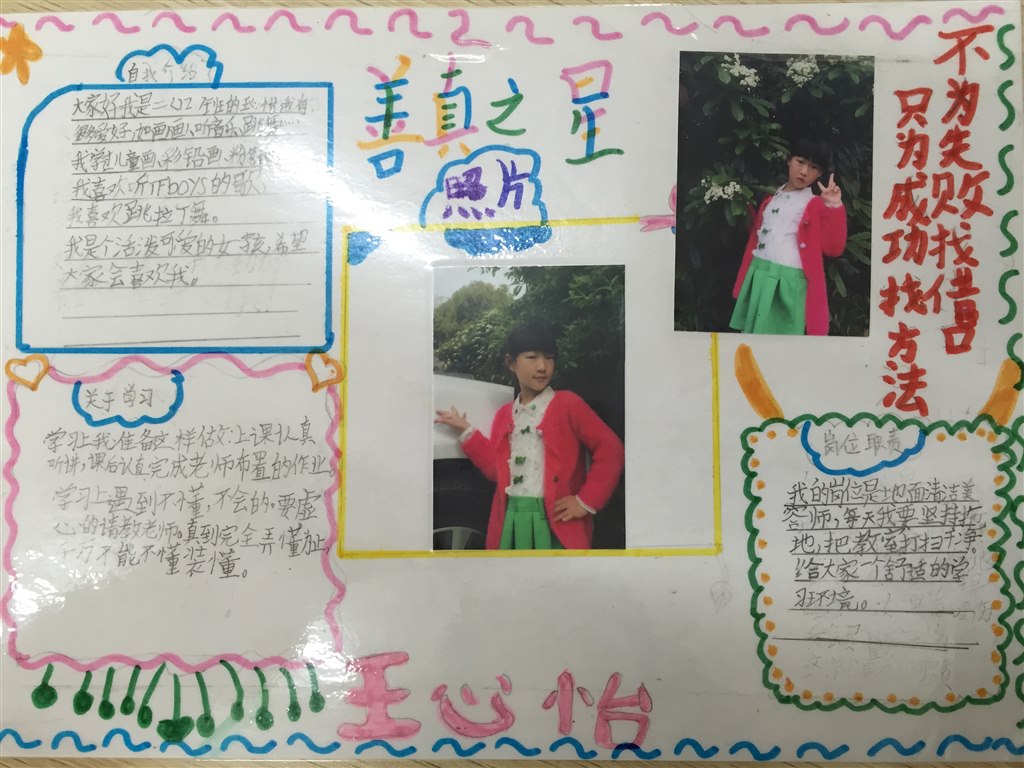 善真之星
照片
不为失败找借口
只为成功找方法
自我介绍
大家好我是二(2)班的
爱好,如画画、听音乐、跳舞……
我学过儿童画、彩铅画、粉
我喜欢听TFboys的歌
我喜欢跳拉丁舞。
我是个活泼可爱的女孩,希望
大家会喜欢我。
关于学习
学习上我准备这样做:上课认真
听讲,课后认真完成老师布置的作业。
学习上遇到不懂,不会的,要虚
心的请教老师。直到完全弄懂为止,
千万不能不懂装懂。
岗位职责
我的岗位是地面清洁美
容师,每天我要坚持拖
地,把教室打扫干净。
给大家一个舒适的学
习环境。
王心怡